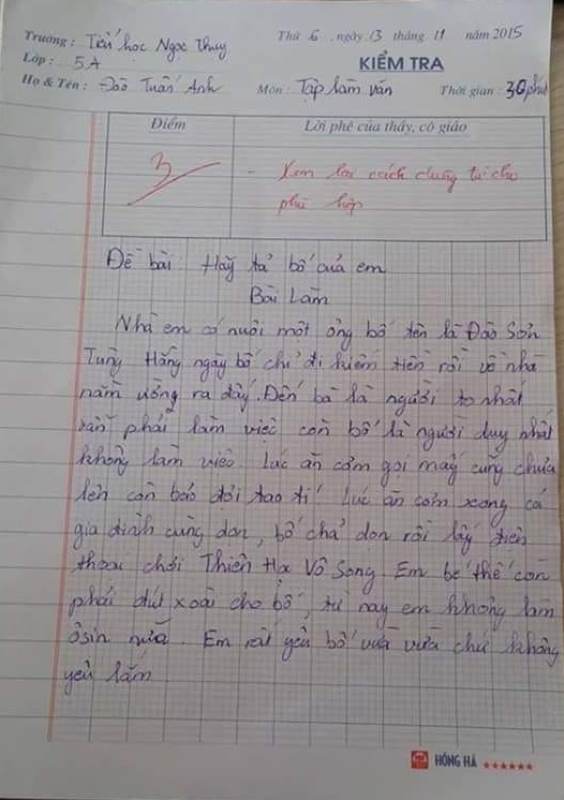 Trường : Tiểu học Ngọc Thụy Thứ 6 , ngày 13 tháng 11 năm 2015
Lớp : 5A KIỂM TRA
Họ & Tên : Đào Tuấn Anh Môn : Tập làm văn Thời gian : 30 phút
Điểm Lời phê của thầy, cô giáo
3 - Xem lại cách dùng từ cho
phù hợp
Đề bài Hãy tả bố của em
Bài Làm
Nhà em có nuôi một ông bố tên là Đào Sơn
Tùng Hằng ngày bố chỉ đi kiếm tiền rồi về nhà
nằm ưỡng ra đấy. Đến bà là người to nhất
vẫn phải làm việc còn bố là người duy nhất
không làm việc. Lúc ăn cơm gọi mấy cũng chưa
lên còn bảo đợi tao tí Lúc ăn cơm xong cả
gia đình cùng dọn, bố chả dọn rồi lấy điện
thoại chơi Thiên Hạ Vô Song Em bé thế còn
phải đút xoài cho bố, từ nay em không làm
ôsin nữa. Em rất yêu bố vừa vừa chứ không
yêu lắm
HỒNG HÀ